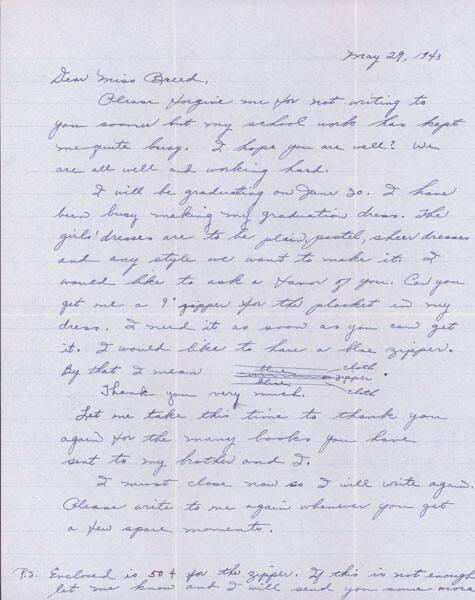 May 29, 1943
Dear Miss Breed,
Please forgive me for not writing to
you sooner but my school work has kept
me quite busy. I hope you are well? We
are all well and working hard.
I will be graduating on June 20. I have
been busy making my graduation dress. The
girls' dresses are to be plain, pastel, sheer dresses
and any style we want to make it. I
would like to ask a favor of you. Can you
get me a 9" zipper for the placket in my
dress. I need it as soon as you can get
it. I would like to have a blue zipper.
By that I mean blue cloth
zipper
blue cloth
Thank you very much.
Let me take this time to thank you
again for the many books you have
sent to my brother and I.
I must close now so I will write again.
Please write to me again whenever you get
a few spare moments.
P.S. Enclosed is 50¢ for the zipper. If this is not enough
let me know and I will send you some more